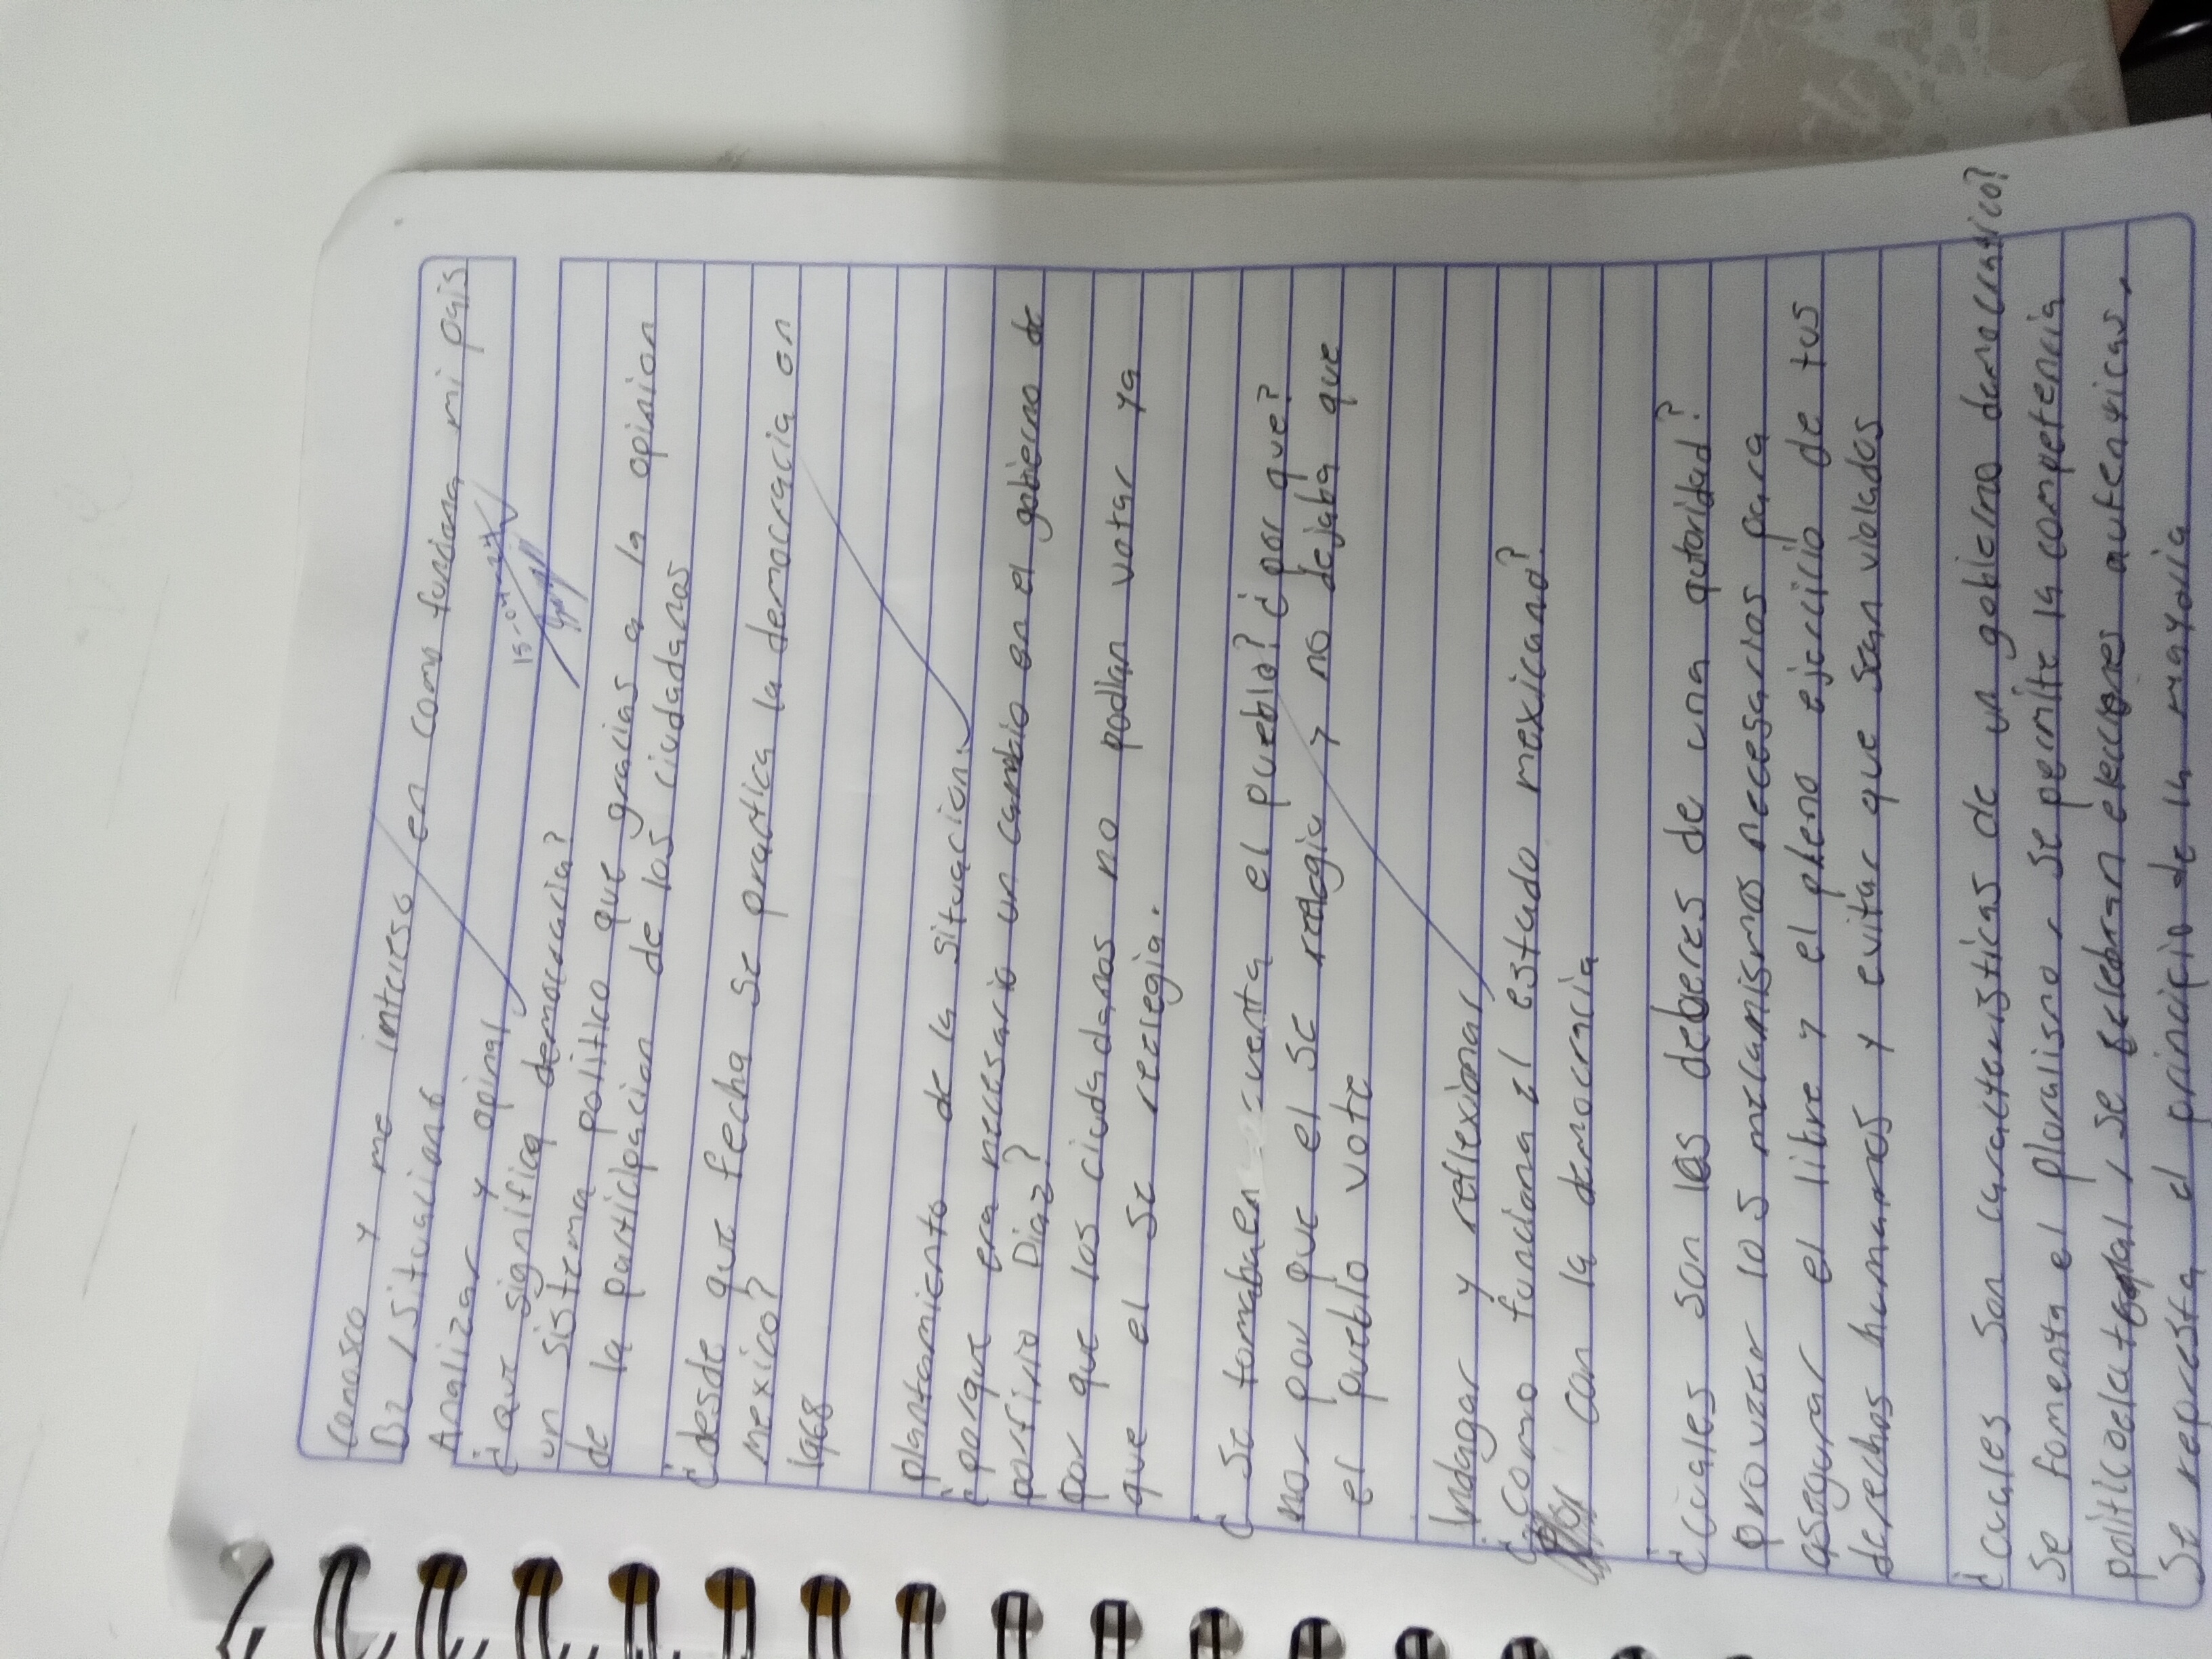 Conosco y me intereso en como funciona mi pais
B2 / Situacion 6
Analizar y opinar
15-04-24
¿que significa democracia?
un sistema politico que gracias a la opinion
de la participacion de los ciudadanos
¿desde que fecha se practica la democracia en
mexico?
1968
plantamiento de la situacion.
¿porque era necesario un cambio en el gobierno de
porfirio Diaz?
por que los ciudadanos no podian votar ya
que el se reelegia.
¿Se tomaba en cuenta el pueblo? ¿por que?
no por que el se reelegia y no dejaba que
el pueblo vote
Indagar y reflexionar
¿como funciona el estado mexicano?
con la democracia
¿Cuales son los deberes de una autoridad?
provuzer los mecanismos necesarios para
asegurar el libre y el pleno ejercicio de tus
derechos humanos y evitar que sean violados
¿cuales son caracteristicas de un gobierno democratico?
Se fomenta el pluralismo, se permite la competencia
politico , se celebran elecciones autenticas,
Se represta el principio de la mayoria